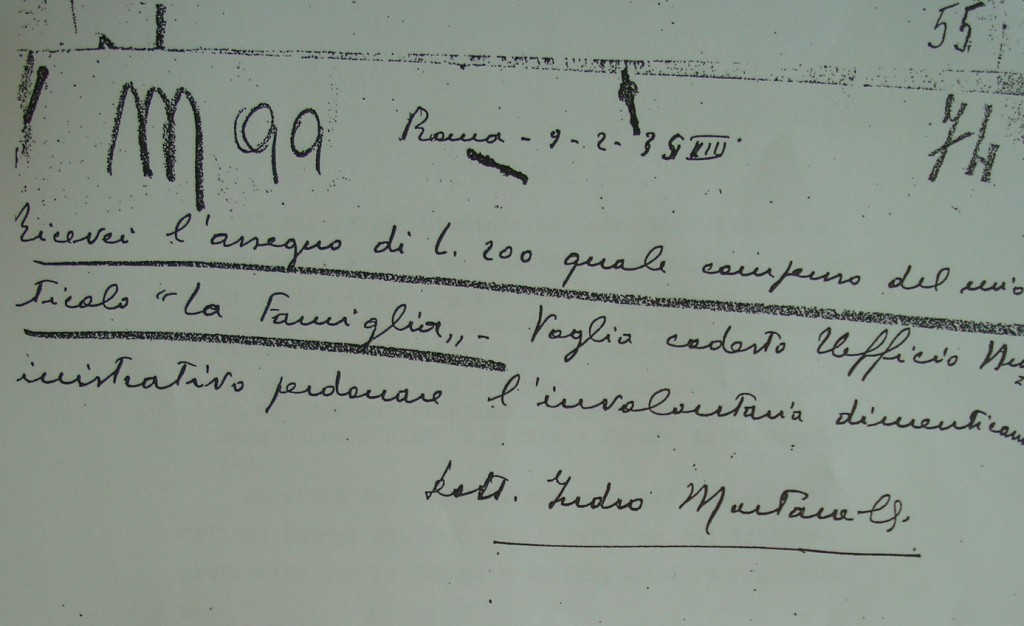 55
M 99 Roma - 9 - 2 - 35 XIII 74
Ricevei l'assegno di L. 200 quale compenso del mio
ticolo "La Famiglia„ - Voglia codesto Ufficio
inistrativo perdonare l'involontaria dimentican
Dott. Indro Montanelli.